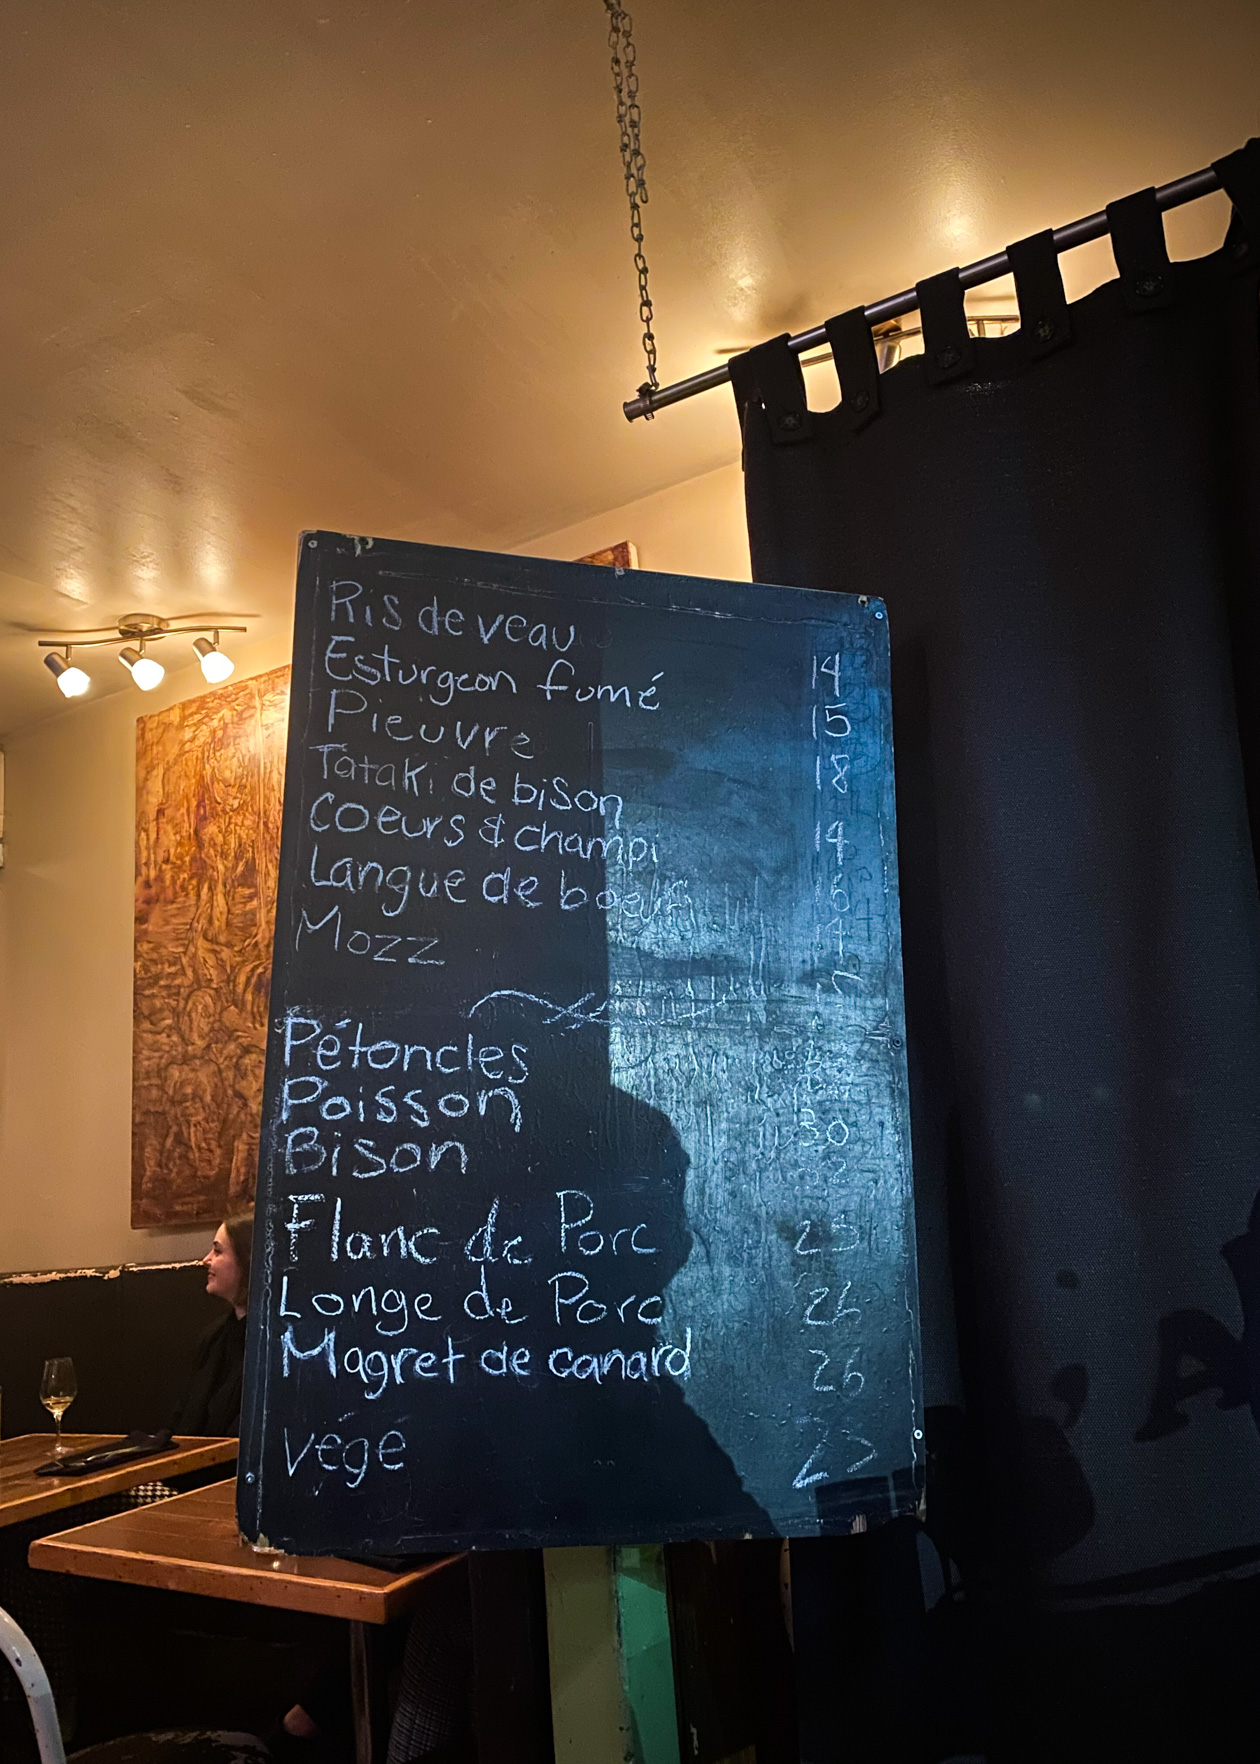 Ris de veau 14
Esturgeon fumé 15
Pieuvre 18
Tataki de bison 14
Coeurs & champi 16
Langue de boeuf
Mozz
Pétoncles
Poisson 30
Bison
Flanc de Porc 25
Longe de Porc 26
Magret de canard 26
végé